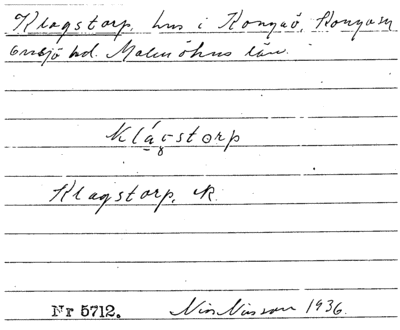 Klagstorp, hus i Konga s, Konga sn
Onsjö hd. Malmöhus län.
Klágstorp
Klagstorp, ek.
Nr 5712. Nils Nilsson 1936.